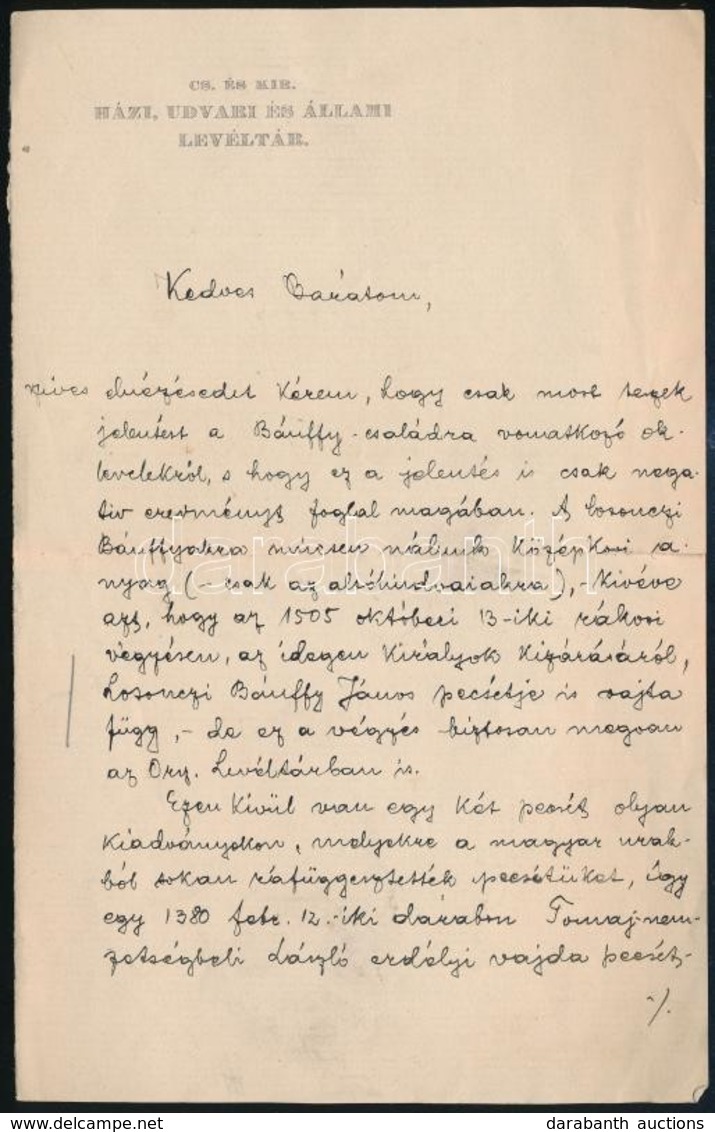 CS. ÉS KIR.
HÁZI, UDVARI ÉS ÁLLAMI
LEVÉLTÁR.
Kedves Barátom,
szives elnézésedet kérem, hogy csak most teszek
jelentést a Bánffy-családra vonatkozó ok-
levelekről, s hogy ez a jelentés is csak nega-
tiv eredményt foglal magában. A losonczi
Bánffyakra nincsen nálunk középkori a-
nyag (- csak az alsólindvaiakra), - kivéve
azt, hogy az 1505 októberi 13-iki rákosi
végzésen, az idegen királyok kizárásáról,
Losonczi Bánffy János pecsétje is rajta
függ, - de ez a végzés biztosan megvan
az Orsz. Levéltárban is.
Ezen kívül van egy két pecsét olyan
kiadványokon, melyekre a magyar urak-
ból sokan ráfüggesztették pecsétüket, így
egy 1380 febr. 12.-iki darabon Tomaj-nem-
zetségbeli László erdélyi vajda pecsét-
./.
darabanth
delcampe.net
darabanth auctions